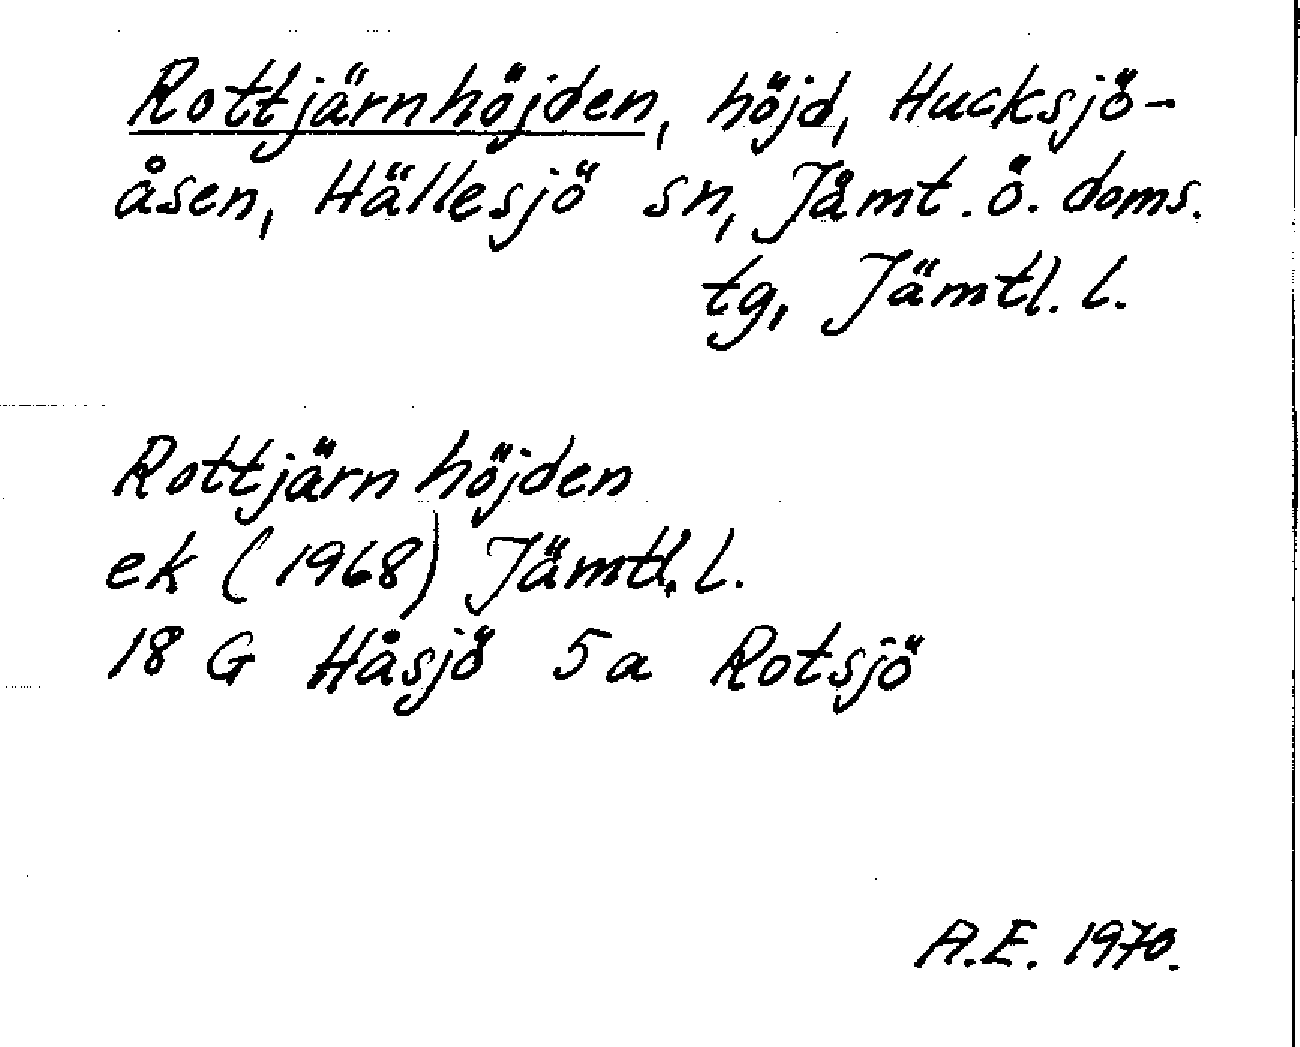 Rottjärnhöjden, höjd, Hucksjö-
åsen, Hällesjö sn, Jämt. ö. doms.
tg, Jämtl. l.
Rottjärnhöjden
ek (1968) Jämtl. l.
18 G Håsjö 5a Rotsjö
A.E. 1970.